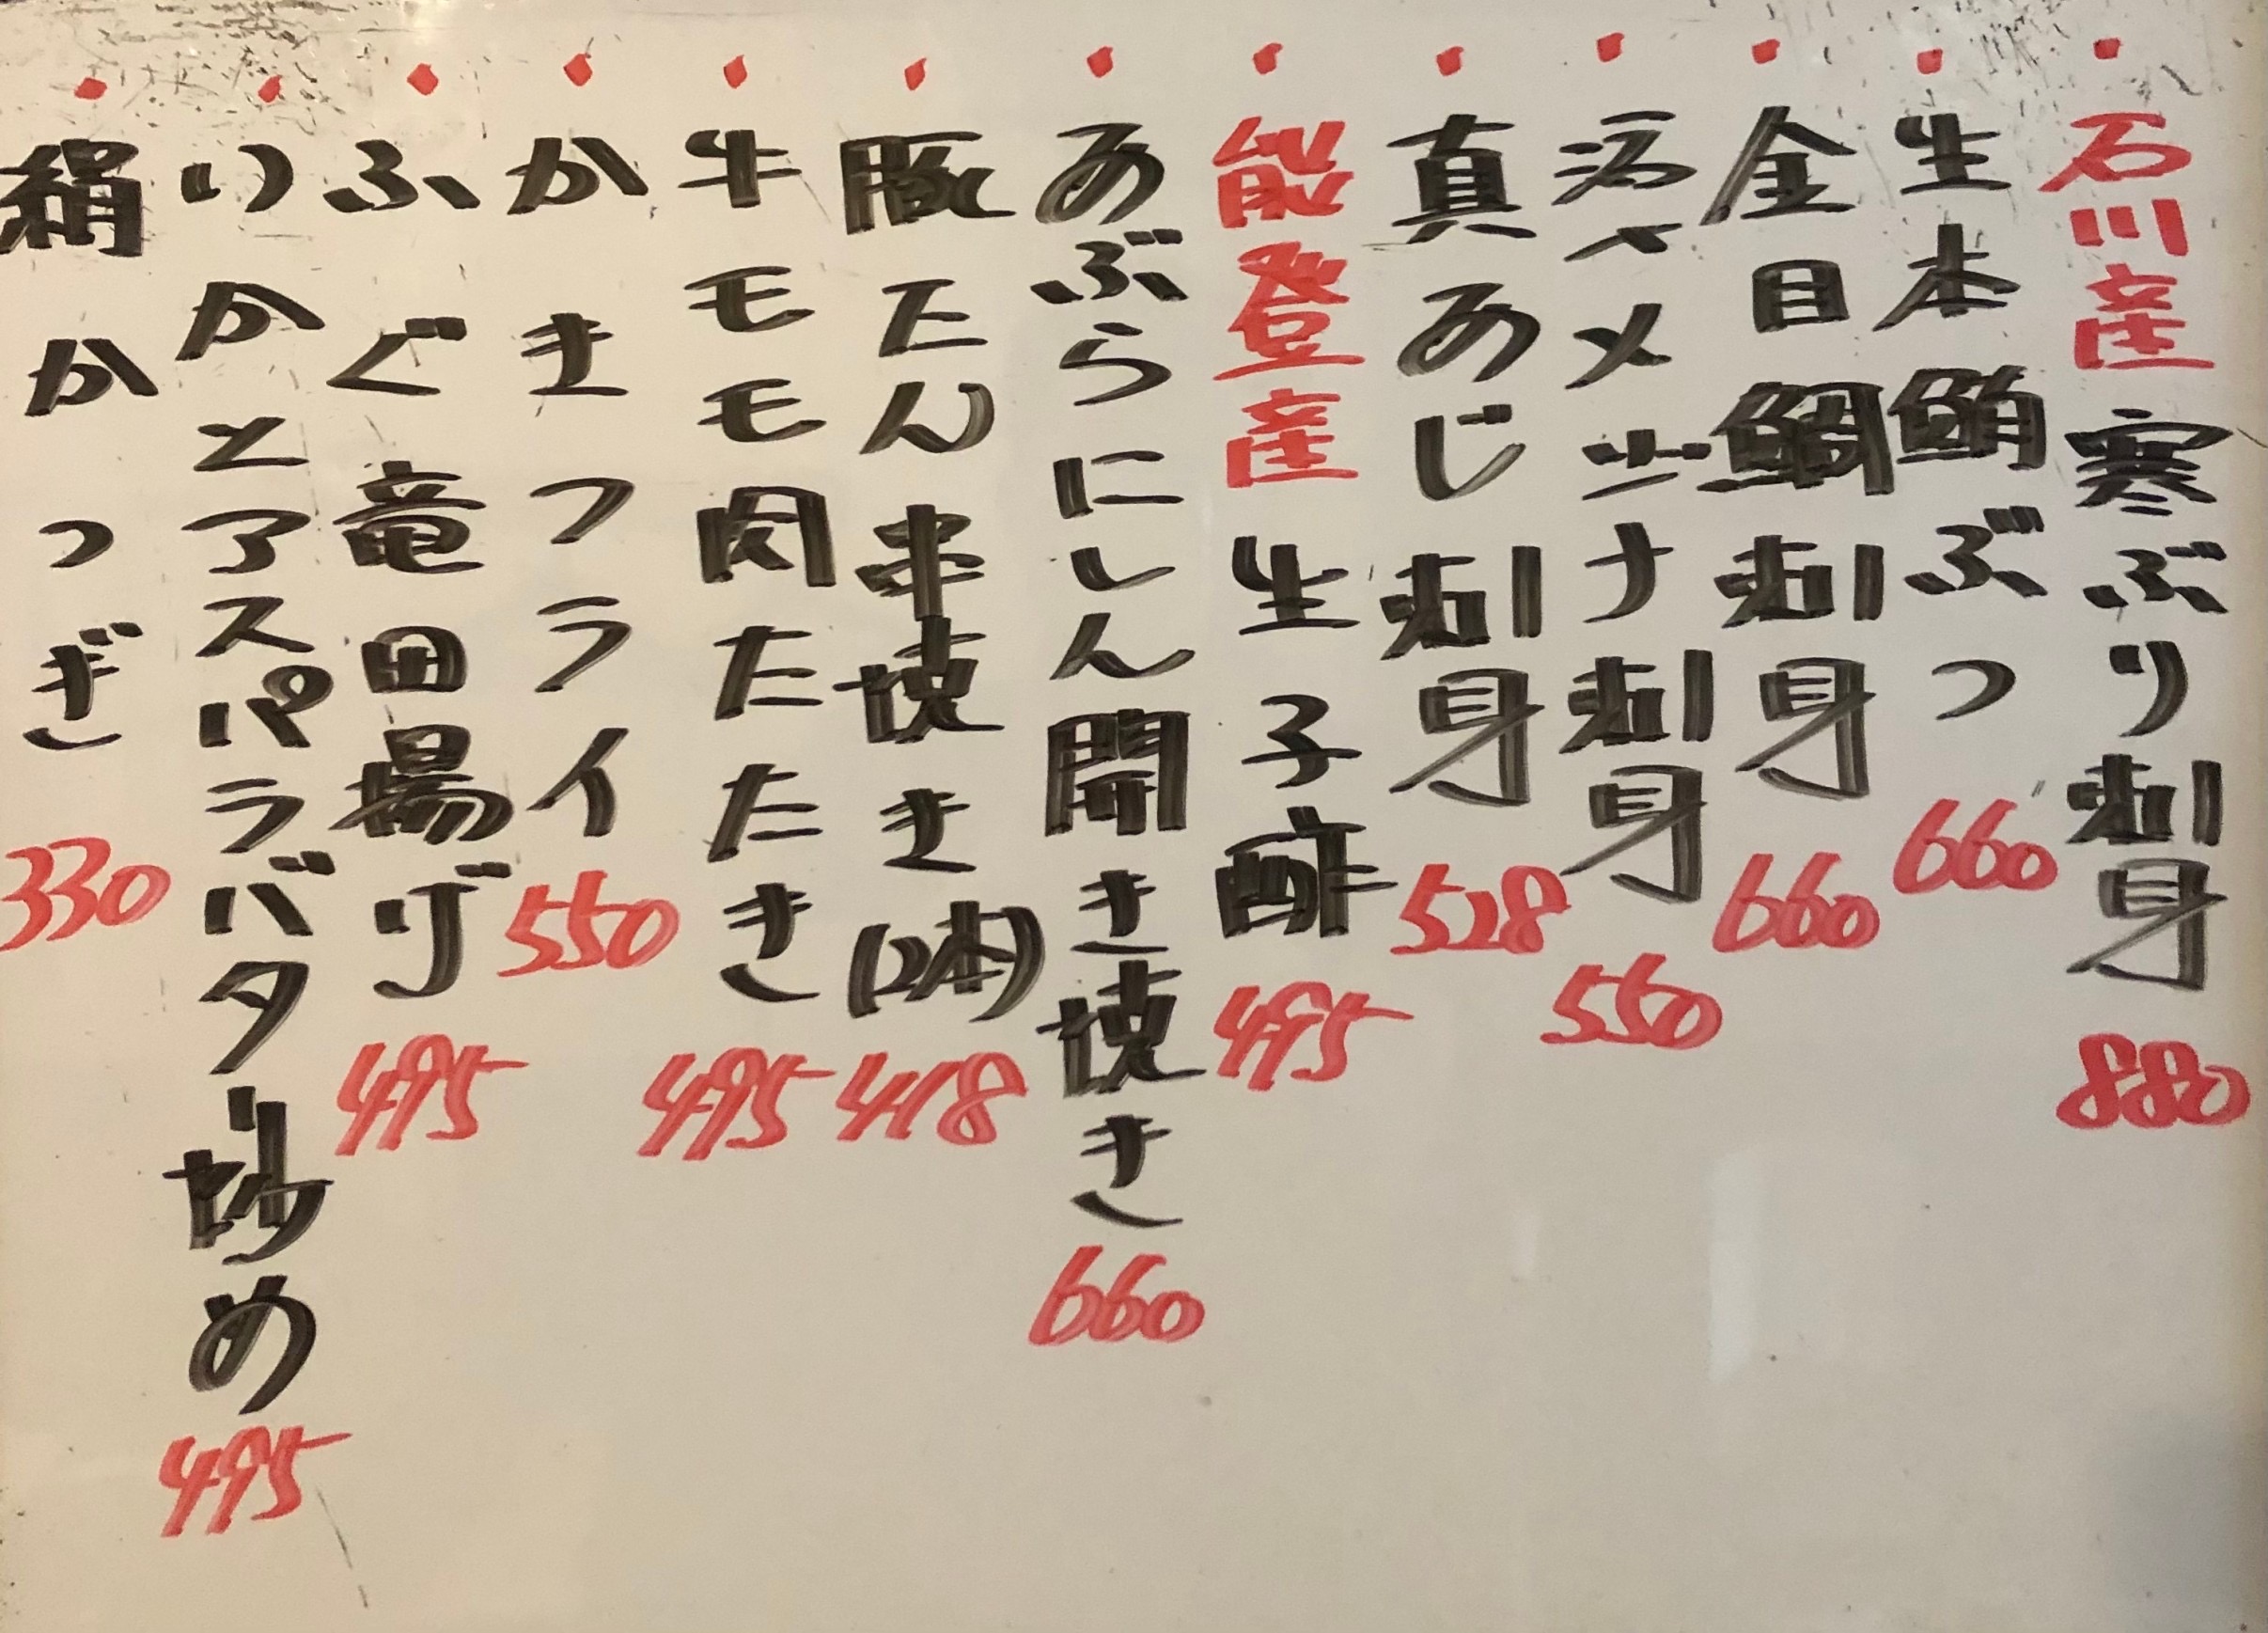 ・石川産寒ぶり刺身 880
・生本鮪ぶつ 660
・金目鯛刺身 660
・刺身 550
・真あじ刺身 528
・能登産生子酢 495
・あぶらにしん開き焼き 660
・豚たん串焼き(2本) 418
・牛モモ肉たたき 495
・かきフライ 550
・ふぐ竜田揚げ 495
・いかとアスパラバター炒め 495
・絹かつぎ 330